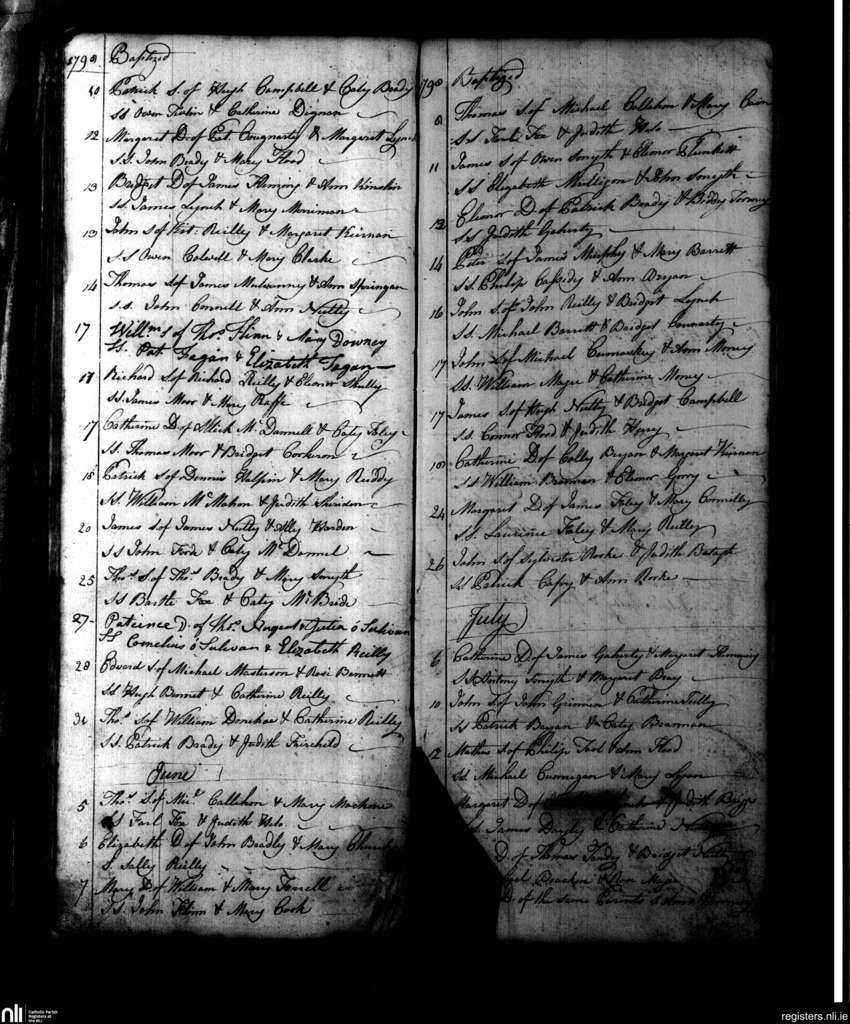 1798 Baptized
10 Patrick S. of Hugh Campbell & Caty Brady
SS Owen & Catherine Dignan
12 Margaret D of Pat & Margaret Lynch
SS. John Brady & Mary Flood
13 Bridget D of James Fleming & Ann
SS. James Lynch & Mary Merriman
13 John S of Pat. Reilly & Margaret Kiernan
SS Owen Colwell & Mary Clarke
14 Thomas S of James Mulvanny & Ann Springan
SS. John Connell & Ann Nulty
17 Willm. S of Thos. Flinn & Mary Downey
SS. Pat Fagan & Elizabeth Fagan
17 Richard S of Richard Reilly & Eleanor Skelly
SS. James Moor & Mary
17 Catherine D of McDannell & Caty Faley
SS. Thomas Moor & Bridget Corkeron
18 Patrick S of Dennis Halpin & Mary Ruddy
SS. William McMahon & Judith Sheridon
20 James S of James Nulty & Ally Harden
SS John Ford & Caty McDannel
25 Thos. S of Thos. Brady & Mary Smyth
SS Bartle Fox & Caty McBride
27 Patience D. of Nugent & Julia ó Sulivan
SS Cornelius ó Sulivan & Elizabeth Reilly
28 Edward S of Michael Masterson & Rose Bennett
SS Hugh Bennet & Catherine Reilly
31 Thos. S of William Donohoe & Catherine Reilly
SS. Patrick Brady & Judith Fairchild
June
5 Thos. S of Callahon & Mary
SS Farl Fox & Judith
6 Elizabeth D of John Beadly & Mary
S. Sally Reilly
7 Mary D of William & Mary Farrell
SS. John Flinn & Mary Cook
1798 Baptized
8 Thomas S of Michael Callahon & Mary
SS Farl Fox & Judith
11 James S of Owen Smyth & Eleanor Plunkett
SS Elizabeth Mulligan & John Smyth
12 Eleanor D of Patrick Brady & Biddy
SS Judith Gaherty
14 Peter S of James Murphy & Mary Barrett
SS Philip Cassidy & Ann
16 John S of John Reilly & Bridget Lynch
SS. Michael Barrett & Bridget
17 John S of Michael & Ann Money
SS. William Magee & Catherine Money
17 James S of Hugh Nulty & Bridget Campbell
SS. Connor Flood & Judith Henry
Catherine D of Colly Bryan & Margaret Kiernan
SS William Brannan & Eleanor Gorry
24 Margaret D of James Faley & Mary Connelly
SS. Laurence Faley & Mary Reilly
26 John S of Sylvester Rorke & Judith
SS Patrick & Ann Rorke
July
6 Catherine D of James Gaherty & Margaret Flemming
SS Antony Smyth & Margaret
10 John S of John & Catherine Tully
SS Patrick Brogan & Caty Brannan
12 Mathew S of Philip & Ann Flood
SS Michael & Mary Lyon
Margaret D of & Judith Briggs
James & Catherine
D of Thomas & Bridget
& Ann
D of the same Parents S Ann
nli Catholic Parish
Registers at
the NLI
registers.nli.ie